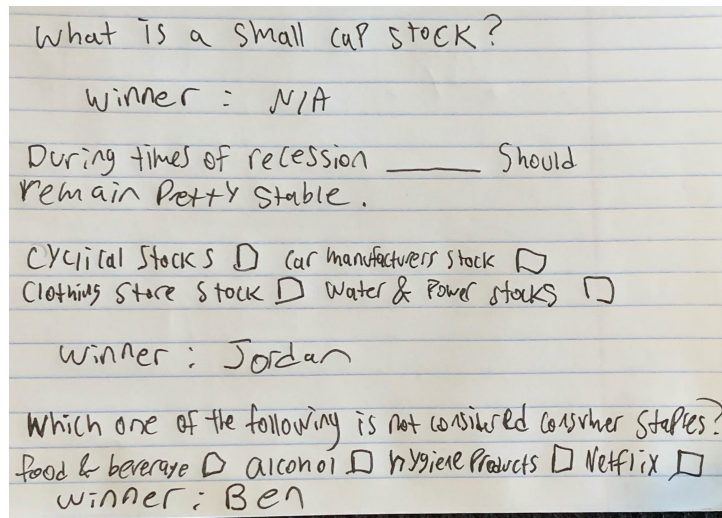 What is a small cap stock?
Winner: N/A
During times of recession ______ Should
remain Pretty Stable.
Cyclical Stocks ☐ Car manufacturers stock ☐
Clothing Store Stock ☐ Water & Power stocks ☐
Winner: Jordan
Which one of the following is not considered consumer staples?
food & beverage ☐ alcohol ☐ hygiene Products ☐ Netflix ☐
Winner: Ben